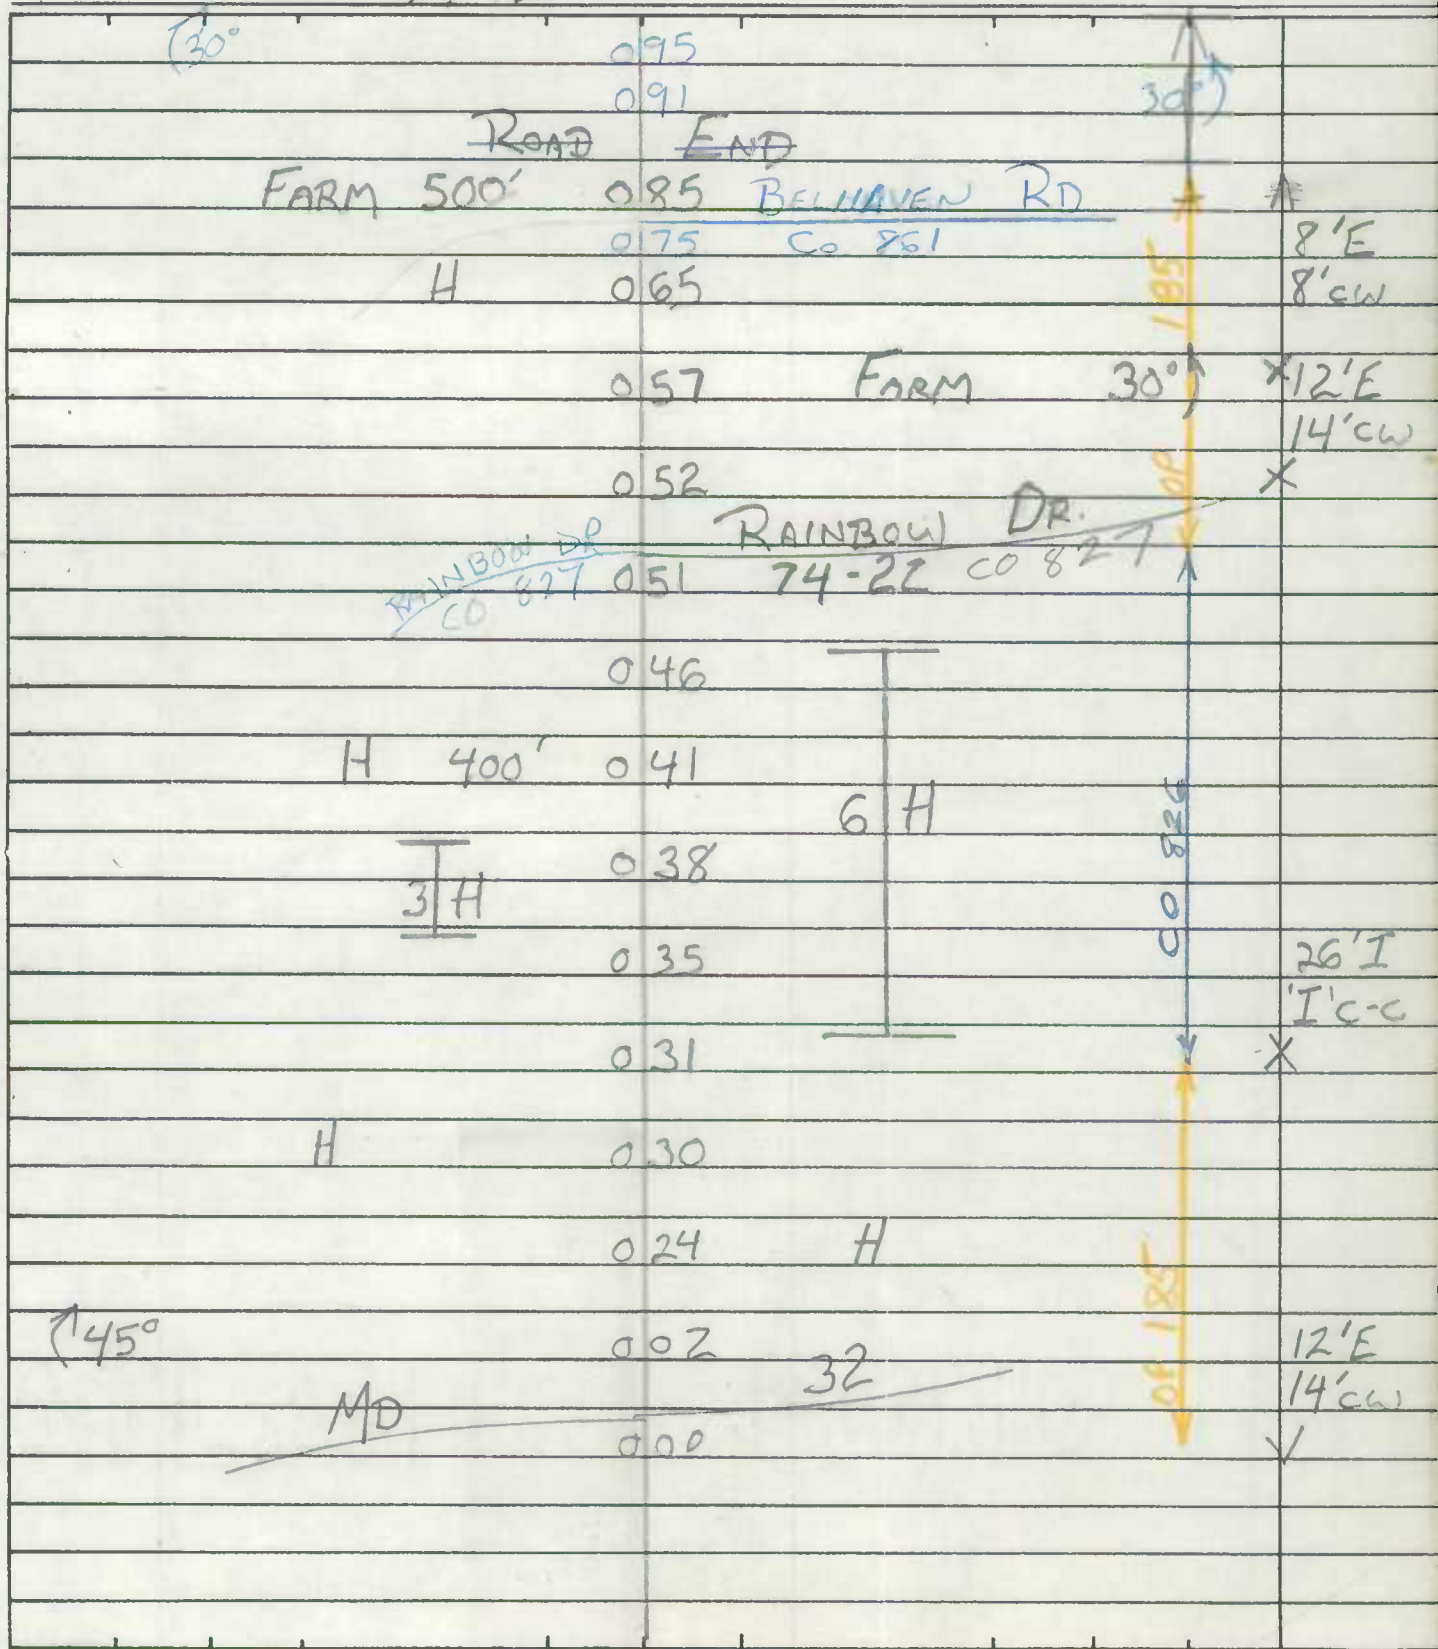 30° 0 95
0 91 30°
ROAD END
FARM 500' 0 85 BELHAVEN RD
0 75 Co 861 8'E
H 0 65 185 8'CW
0 57 FARM 30° 12'E
14'CW
0 52 OP
RAINBOW DR.
RAINBOW DR
CO 827 0 51 74-22 CO 827
0 46
H 400' 0 41
6 H
0 38 CO 826
3 H
0 35 26'I
'I'C-C
0 31
H 0 30
0 24 H
OP 185
45° 0 02 12'E
MD 32 14'CW
0 00